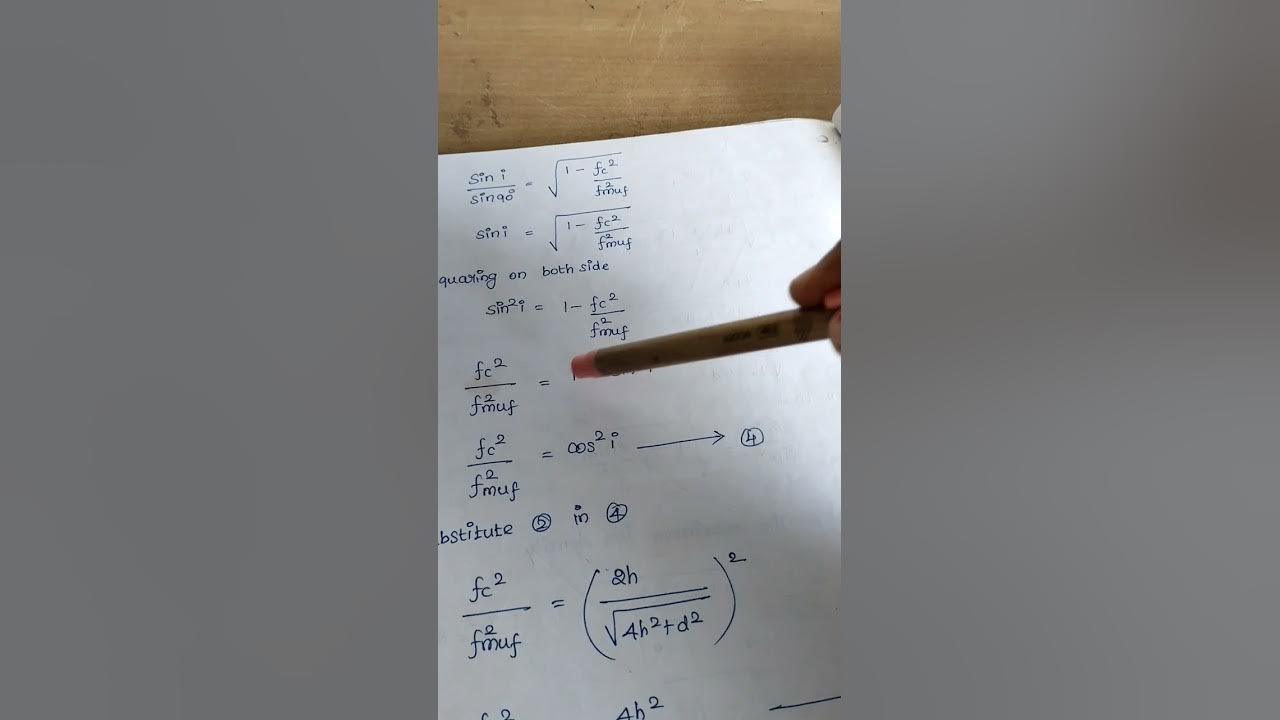 sin i / sin 90° = √(1 - fc² / f²muf)
sin i = √(1 - fc² / f²muf)
quaring on both side
sin² i = 1 - fc² / f²muf
fc² / f²muf =
fc² / f²muf = cos² i → ④
bstitute ⑤ in ④
fc² / f²muf = (2h / √4h²+d²)²
4h²